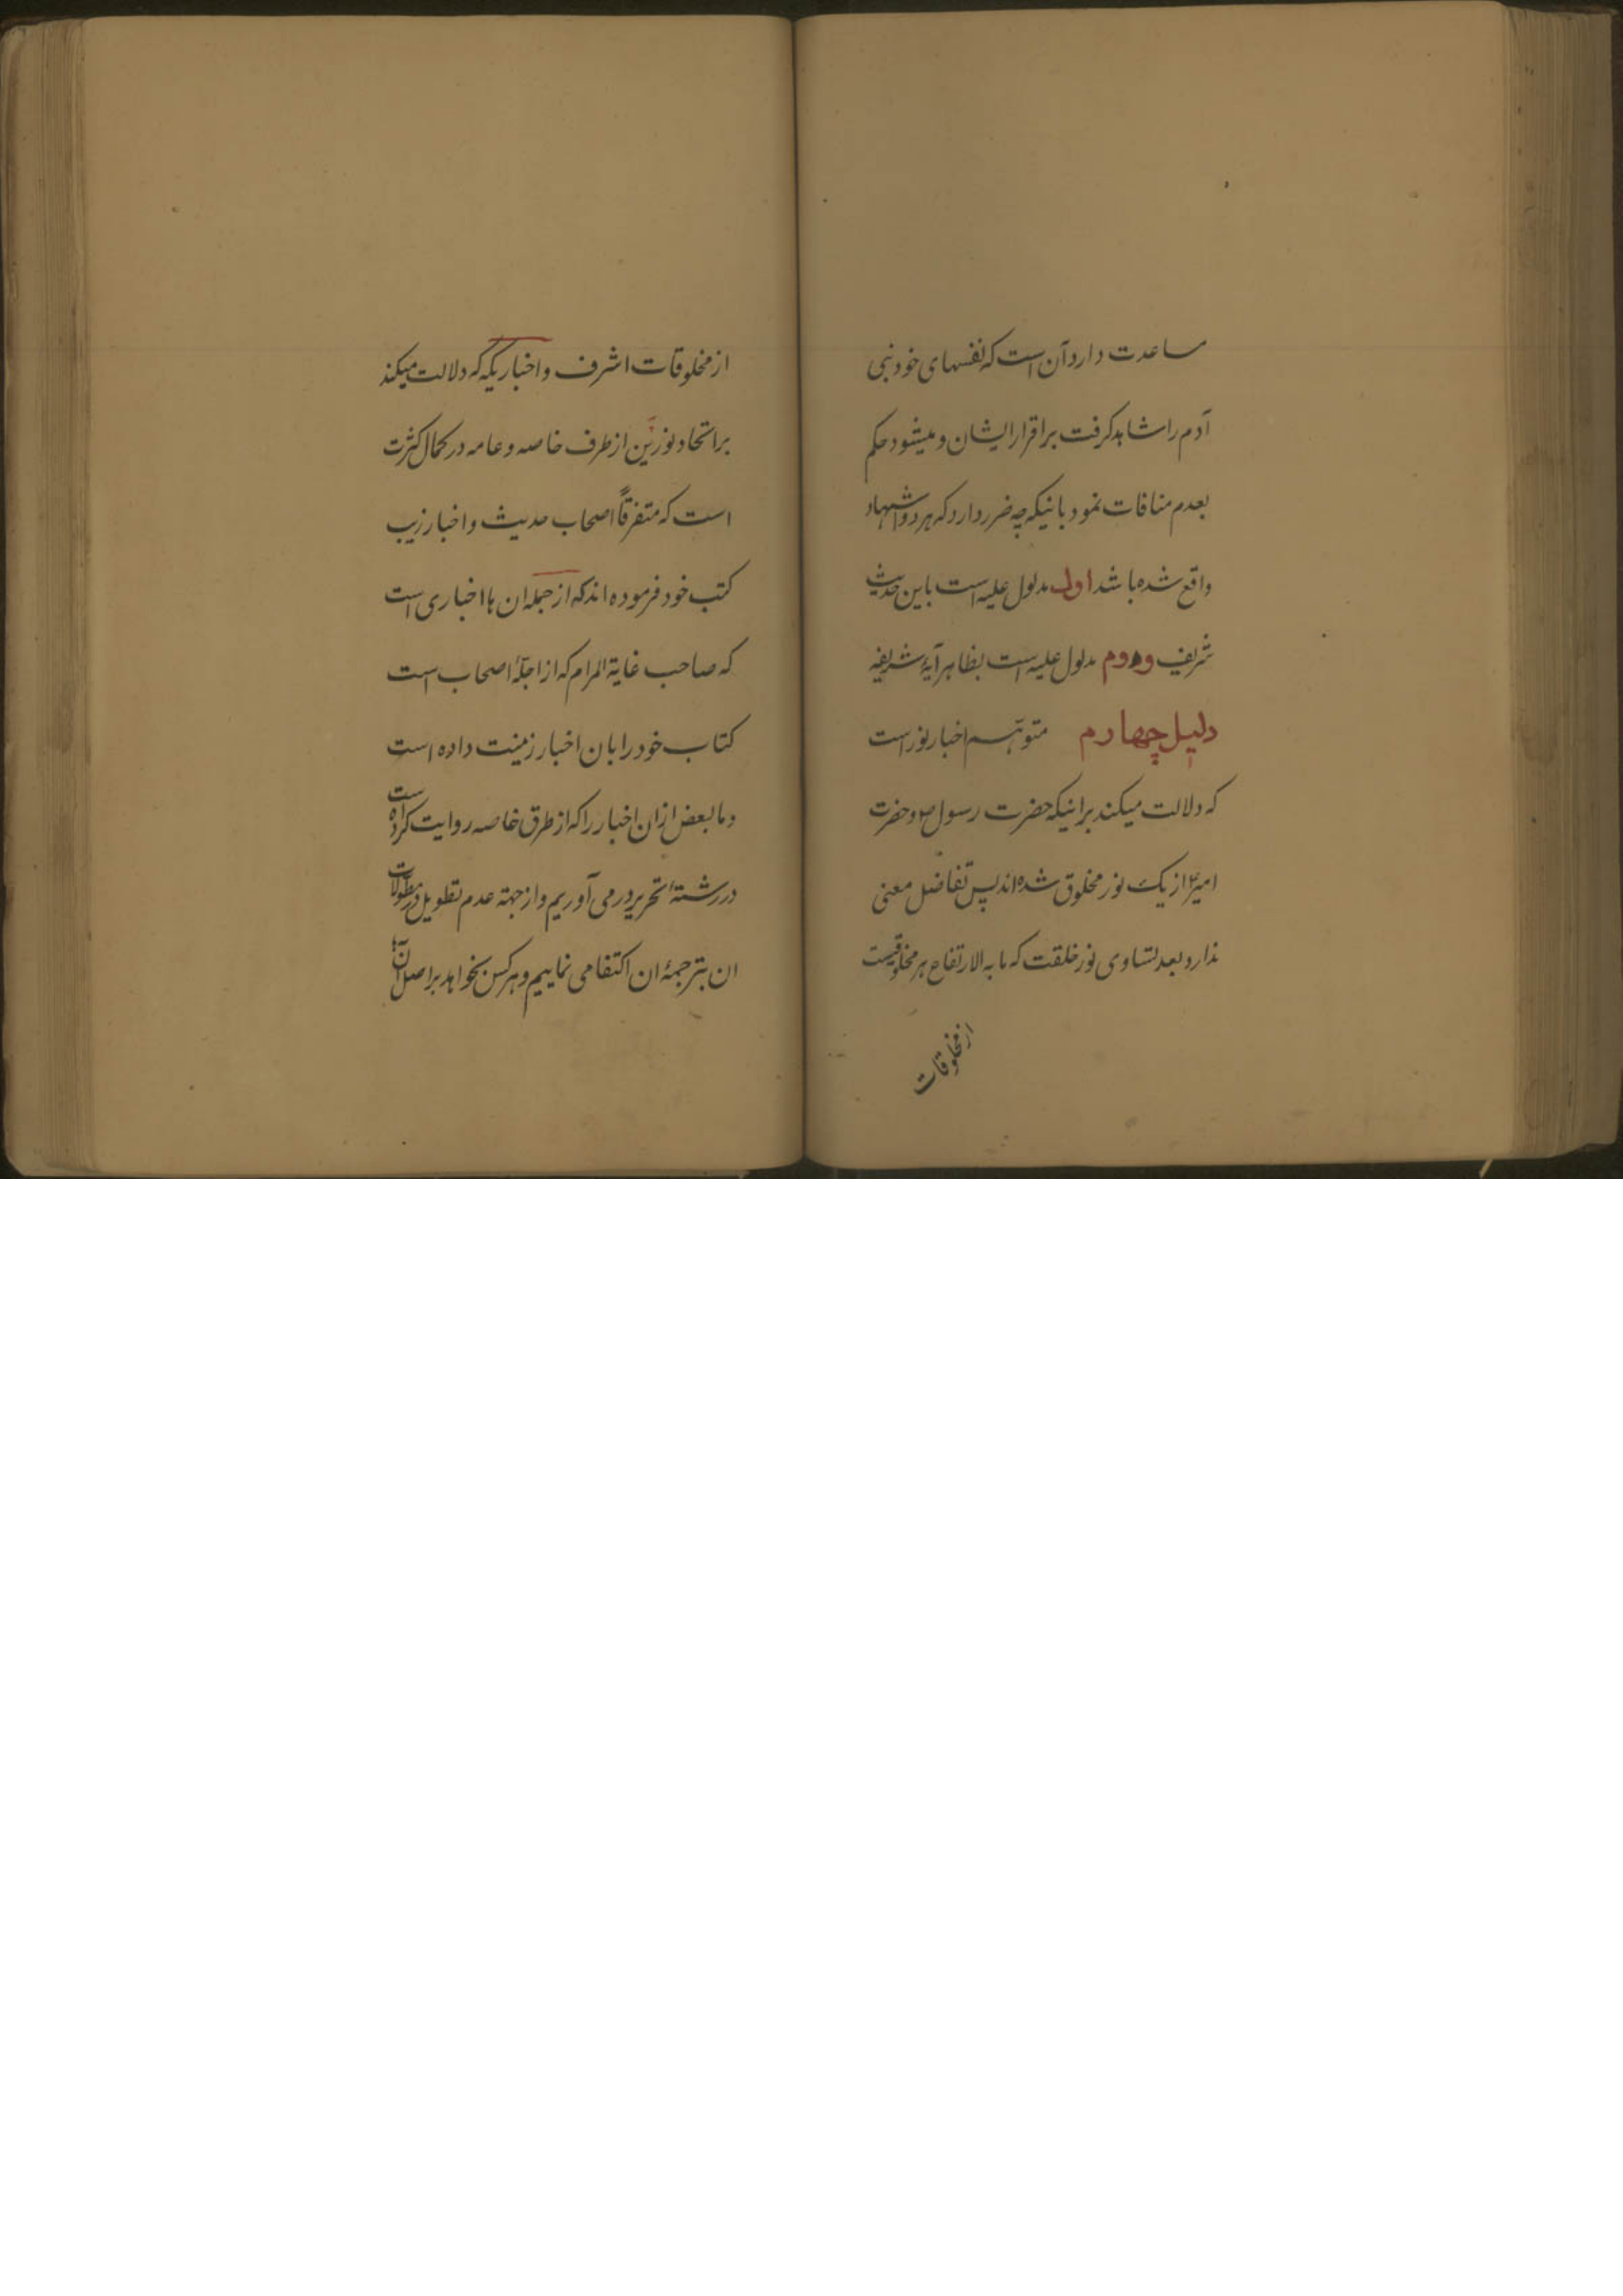 مساعدت دارد آن است که نفسهای خود نبی
آدم را شاهد گرفت بر اقرار ایشان و میشود حکم
بعدم منافات نمود باینکه چه ضرر دارد که هر دو اشهاد
واقع شده باشد اول مدلول علیه است باین حدیث
شریف و دوم مدلول علیه است بظاهر آیهٔ شریفه
دلیل چهارم متوهم اخبار نور است
که دلالت میکند بر اینکه حضرت رسول ص و حضرت
امیر ع از یک نور مخلوق شده اند پس تفاضل معنی
ندارد بعد تساوی نور خلقت که ما به الارتفاع هر مخلوقیست
از مخلوقات
از مخلوقات اشرف و اخباریکه که دلالت میکند
بر اتحاد نورین از طرف خاصه و عامه در کمال کثرت
است که متفرقاً اصحاب حدیث و اخبار زیب
کتب خود فرموده اند که از جمله ان ها اخباری است
که صاحب غایة المرام که از اجلّهٔ اصحاب است
کتاب خود را بان اخبار زینت داده است
و ما بعض ازان اخبار را که از طرق خاصه روایت کرده است
در رشتهٔ تحریر در می آوریم و از جهته عدم تطویل در مطولات
ان بترجمهٔ ان اکتفا می نماییم و هرکس بخواهد بر اصل آن